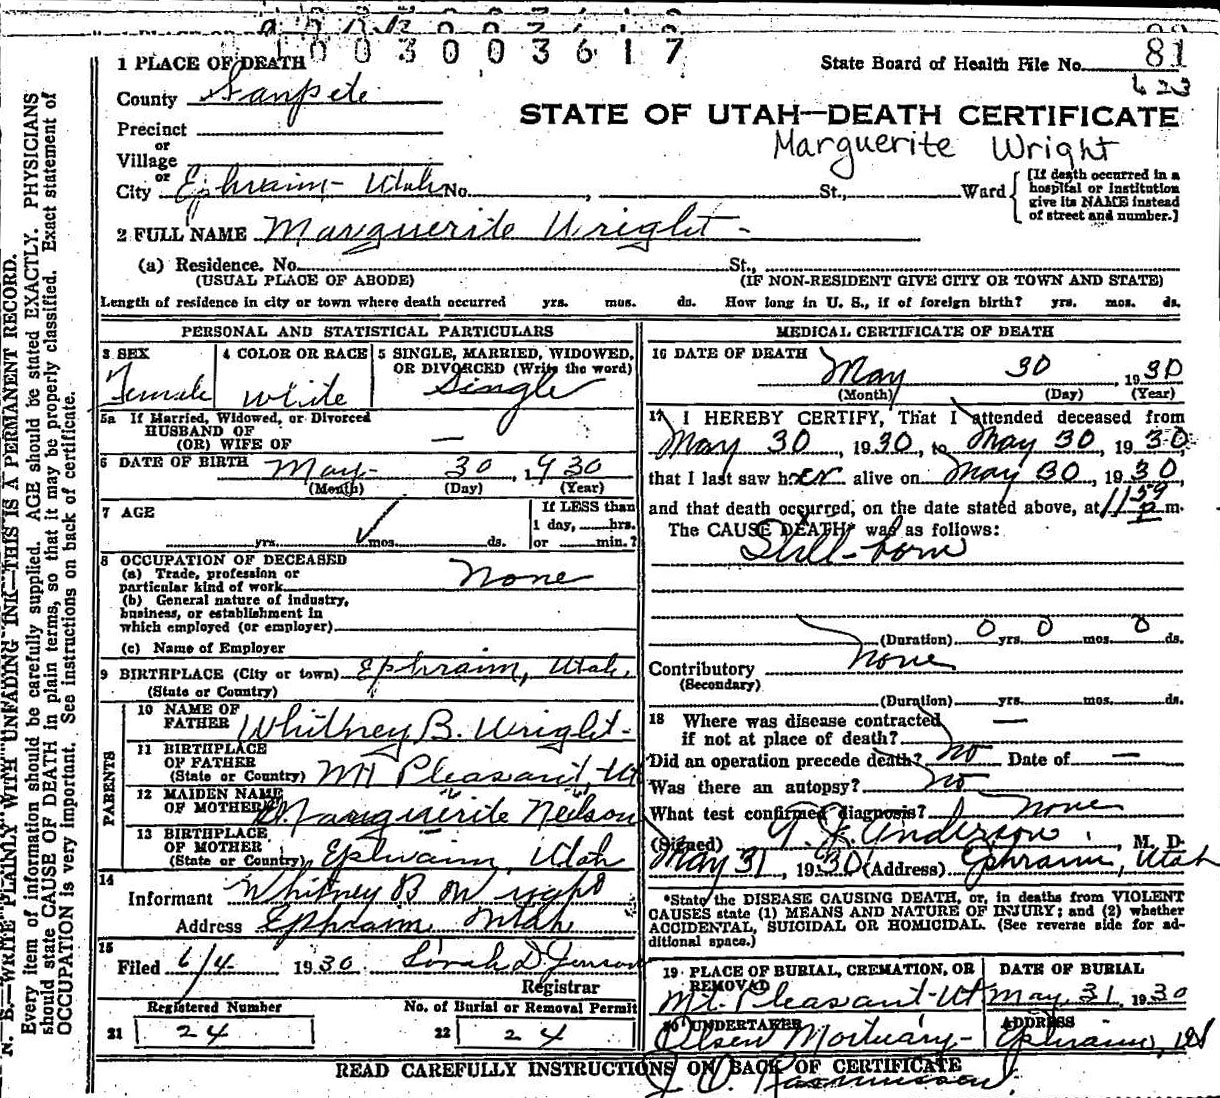 1003003617
State Board of Health File No. 81
623
STATE OF UTAH—DEATH CERTIFICATE
Marguerite Wright
1 PLACE OF DEATH
County Sanpete
Precinct
or
Village
or
City Ephraim - Utah No. , St., Ward
[If death occurred in a
hospital or institution
give its NAME instead
of street and number.]
2 FULL NAME Marguerite Wright -
(a) Residence. No. St.,
(USUAL PLACE OF ABODE) (IF NON-RESIDENT GIVE CITY OR TOWN AND STATE)
Length of residence in city or town where death occurred yrs. mos. ds. How long in U. S., if of foreign birth? yrs. mos. ds.
PERSONAL AND STATISTICAL PARTICULARS
3 SEX
Female
4 COLOR OR RACE
White
5 SINGLE, MARRIED, WIDOWED,
OR DIVORCED (Write the word)
Single
5a If Married, Widowed, or Divorced
HUSBAND OF
(OR) WIFE OF —
6 DATE OF BIRTH May 30, 1930
(Month) (Day) (Year)
7 AGE
yrs. mos. ds.
If LESS than
1 day, hrs.
or min.?
8 OCCUPATION OF DECEASED
(a) Trade, profession or
particular kind of work None
(b) General nature of industry,
business, or establishment in
which employed (or employer)
(c) Name of Employer
9 BIRTHPLACE (City or town) Ephraim, Utah.
(State or Country)
PARENTS
10 NAME OF
FATHER Whitney B. Wright -
11 BIRTHPLACE
OF FATHER
(State or Country) Mt Pleasant, Ut
12 MAIDEN NAME
OF MOTHER Marguerite Neilson
13 BIRTHPLACE
OF MOTHER
(State or Country) Ephraim, Utah
14
Informant Whitney B Wright
Address Ephraim Utah
15
Filed 6/4 1930 Sarah D Jensen
Registrar
Registered Number
21 24
No. of Burial or Removal Permit
22 24
MEDICAL CERTIFICATE OF DEATH
16 DATE OF DEATH
May 30, 1930
(Month) (Day) (Year)
17 I HEREBY CERTIFY, That I attended deceased from
May 30, 1930, to May 30, 1930,
that I last saw her alive on May 30, 1930,
and that death occurred, on the date stated above, at 1159 P m.
The CAUSE DEATH* was as follows:
Still-born
(Duration) 0 yrs. 0 mos. 0 ds.
Contributory None
(Secondary)
(Duration) yrs. mos. ds.
18 Where was disease contracted
if not at place of death? —
Did an operation precede death? no Date of —
Was there an autopsy? no
What test confirmed diagnosis? none
(Signed) Anderson, M. D.
May 31, 1930 (Address) Ephraim, Utah
*State the DISEASE CAUSING DEATH, or, in deaths from VIOLENT
CAUSES state (1) MEANS AND NATURE OF INJURY; and (2) whether
ACCIDENTAL, SUICIDAL OR HOMICIDAL. (See reverse side for ad-
ditional space.)
19 PLACE OF BURIAL, CREMATION, OR
REMOVAL
Mt. Pleasant - Ut
DATE OF BURIAL
May, 31, 1930
20 UNDERTAKER
Olsen Mortuary -
ADDRESS
Ephraim, Ut
READ CAREFULLY INSTRUCTIONS ON BACK OF CERTIFICATE
N. B.—WRITE PLAINLY WITH UNFADING INK—THIS IS A PERMANENT RECORD.
Every item of information should be carefully supplied. AGE should be stated EXACTLY. PHYSICIANS
should state CAUSE OF DEATH in plain terms, so that it may be properly classified. Exact statement of
OCCUPATION is very important. See instructions on back of certificate.